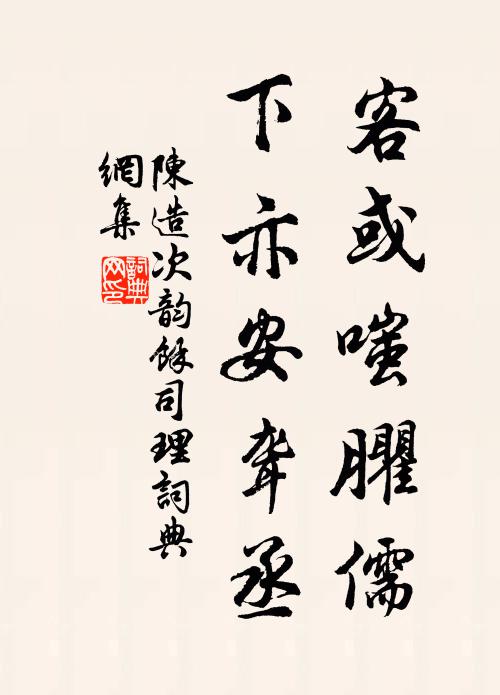 客或嗤臞儒
下亦安聾丞
陳造次韵餘司理詞典
網集
詞典網印